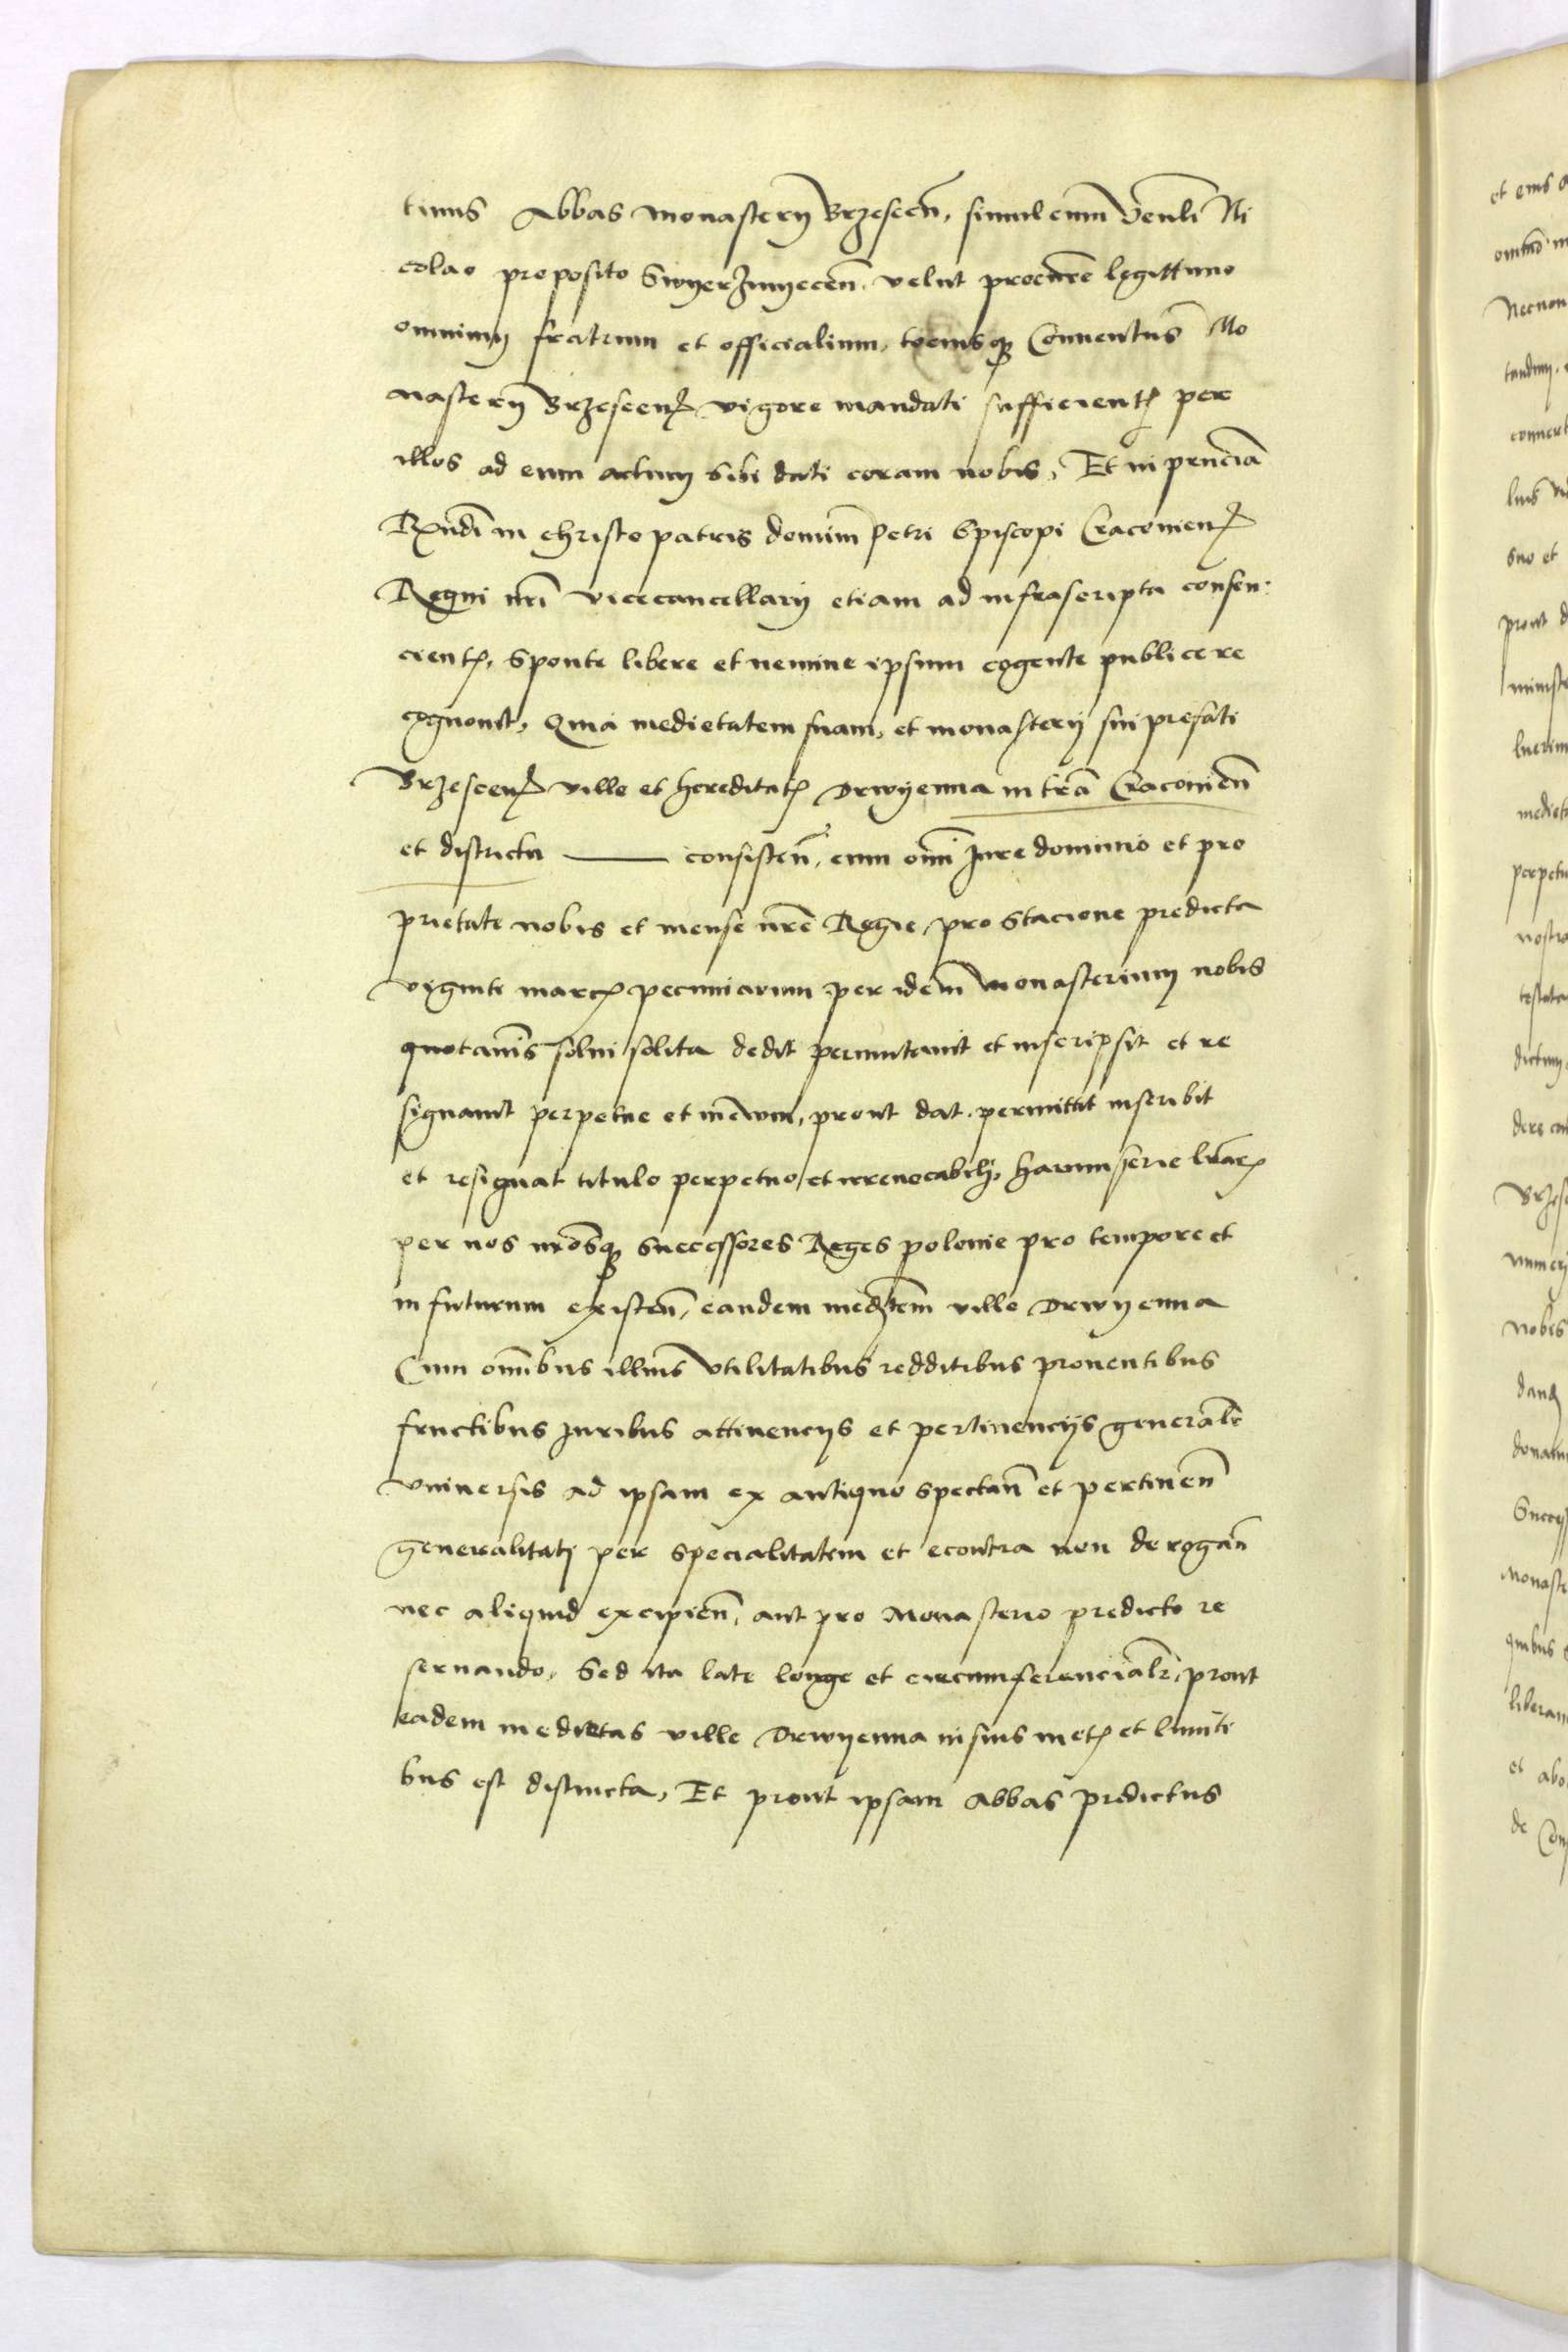 tinus Abbas monasterij Brzescen̄, simul cum Venli Ni
colao preposito Swyerzinyecen̄ velut procure legittimo
omnium fratrum et officialium, tociusq3 Conuentus Mo
nasterij Brzescen̄ vigore mandati sufficient̄ per
illos ad eum actum sibi dati coram nobis, Et in pnciā
Rndi in christo patris domini Petri Episcopi Cracouien̄
Regni nri vicecancellarij etiam ad infrascripta consen
cient̄, Sponte libere et nemine ipsum cogente publice re
cognouit, Quia medietatem suam, et monasterij sui prefati
Brzescen̄ ville et hereditat̄ Drwyenna in trā Cracouien̄
et districtu —— consisten̄, cum om̄i Jure dominio et pro
prietate nobis et mense nrē Regie, pro stacione predicta
viginti marc̄ pecuniarum per idem monasterium nobis
quotannis solui solita dedit permutauit et inscripsit et re
signauit perpetue et in ewm, prout dat permittit inscribit
et resignat titulo perpetuo et irreuocabili, harum serie lrār̄
per nos nrosq3 successores Reges polonie pro tempore et
in futurum existen̄, eandem medtem ville Drwyenna
Cum omībus illius vtilitatibus redditibus prouentibus
fructibus Juribus attinencijs et pertinencijs generalr̄
vniuersis ad ipsam ex antiquo spectan̄ et pertinen̄
generalitati per specialitatem et econtra non derogan̄
nec aliquid excipien̄, aut pro Monasterio predicto re
seruando, Sed ita late longe et circumferencialr̄, prout
eadem medietas ville Drwyenna in suis met̄ et limiti
bus est distincta, Et prout ipsam Abbas predictus